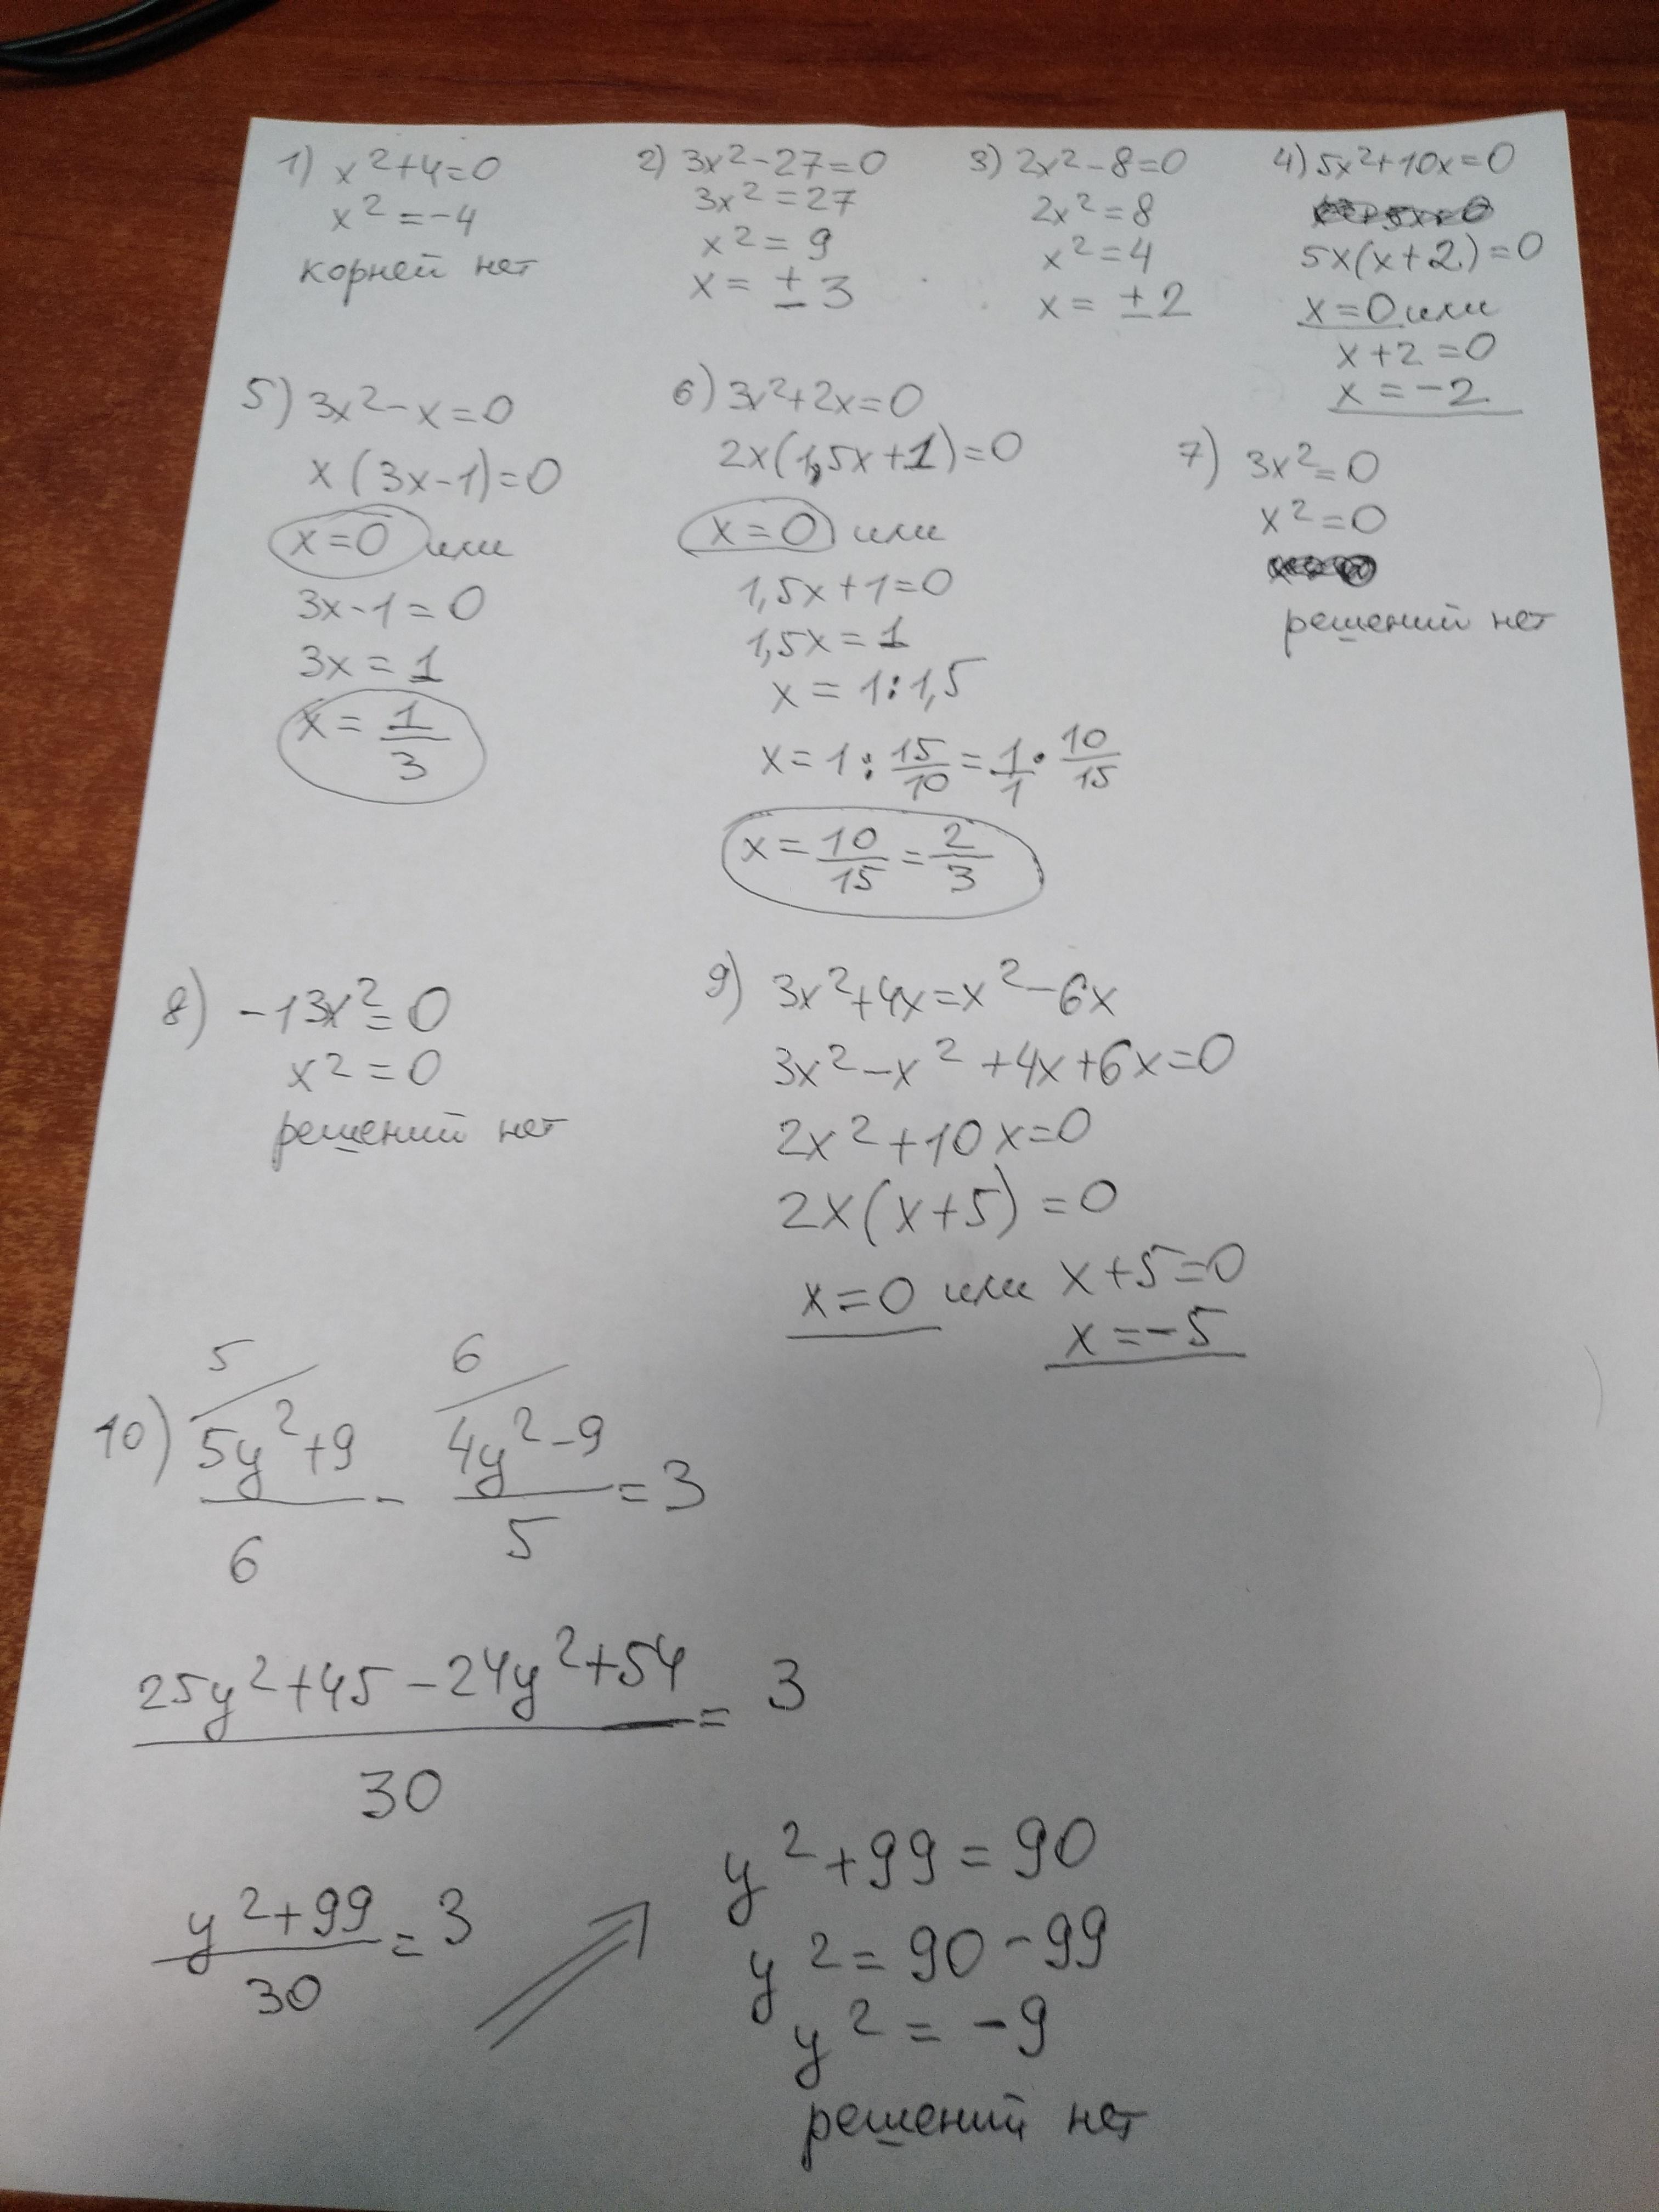 1) x²+4=0
x²=-4
корней нет
2) 3x²-27=0
3x²=27
x²=9
x=±3
3) 2x²-8=0
2x²=8
x²=4
x=±2
4) 5x²+10x=0
5x(x+2)=0
x=0 или
x+2=0
x=-2
5) 3x²-x=0
x(3x-1)=0
x=0 или
3x-1=0
3x=1
x=1/3
6) 3x²+2x=0
2x(1,5x+1)=0
x=0 или
1,5x+1=0
1,5x=1
x=1:1,5
x=1:15/10=1/1·10/15
x=10/15=2/3
7) 3x²=0
x²=0
решений нет
8) -13x²=0
x²=0
решений нет
9) 3x²+4x=x²-6x
3x²-x²+4x+6x=0
2x²+10x=0
2x(x+5)=0
x=0 или x+5=0
x=-5
5/ 6/
10) (5y²+9)/6 - (4y²-9)/5 = 3
(25y²+45-24y²+54)/30 = 3
(y²+99)/30 = 3
y²+99=90
y²=90-99
y²=-9
решений нет